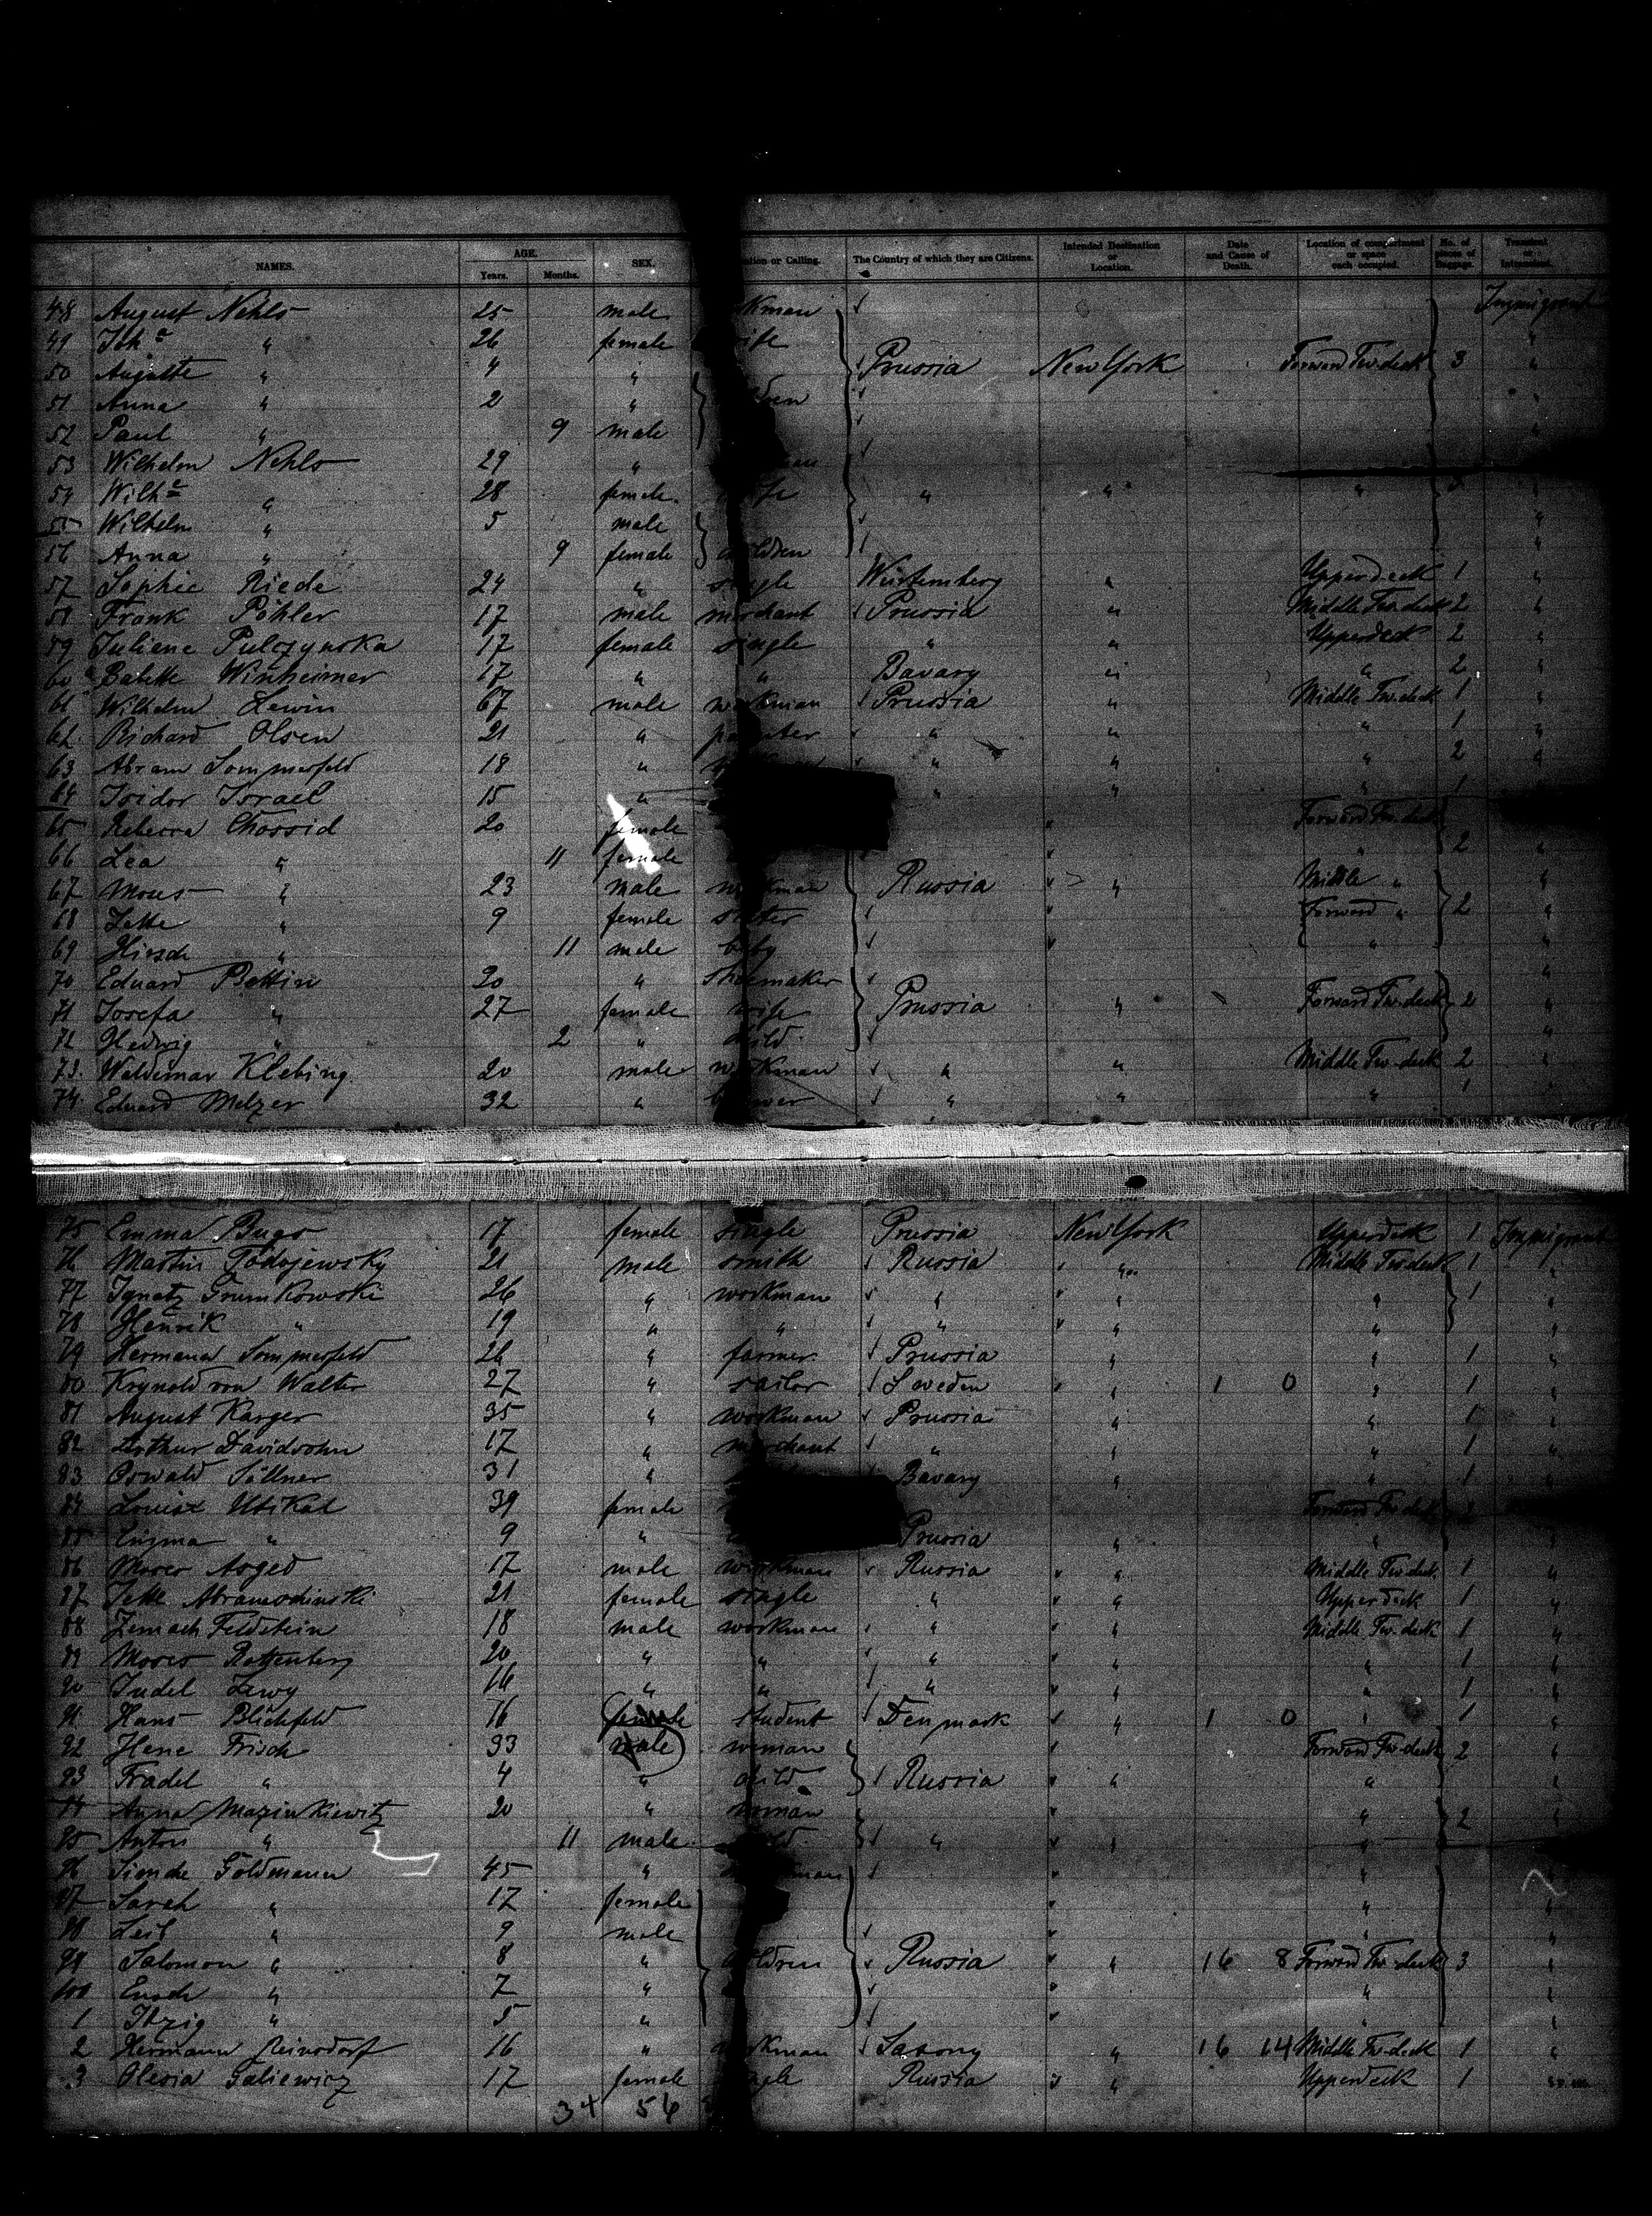 NAMES. AGE. Years. Months. SEX. ation or Calling. The Country of which they are Citizens. Intended Destination or Location. Date and Cause of Death. Location of compartment or space each occupied. No. of pieces of Baggage. Transient or Intransient.
48 August Nehls 25 male kman Immigrant
49 Joh " 26 female ife "
50 Auguste " 4 " Prussia New York Forward Tw. deck 3 "
51 Anna " 2 " dren "
52 Paul " 9 male "
53 Wilhelm Nehls 29 " "
54 Wilh " 28 female " " " "
55 Wilhelm " 5 male "
56 Anna " 9 female children "
57 Sophie Riede 24 " single Würtemberg " Upperdeck 1 "
58 Frank Pöhler 17 male merchant Prussia " Middle Tw. deck 2 "
59 Juliene Pulczynska 17 female single " " Upperdeck 2 "
60 Babette Winheimer 17 " " Bavary " " 2 "
61 Wilhelm Lewin 67 male workman Prussia " Middle Tw. deck 1 "
62 Richard Olsen 21 " " " " 1 "
63 Abram Sommerfeld 18 " " " " 2 "
64 Isidor Israel 15 " " " " 1 "
65 Rebecca Chossid 20 female Forward Tw. deck
66 Lea " 11 female 2 "
67 " 23 male workman Russia " Middle " "
68 " 9 female sister Forward " 2 "
69 Hirsch " 11 male baby " "
70 Eduard Bettin 20 " shoemaker "
71 Josefa " 27 female wife Prussia " Forward Tw. deck 2 "
72 Hedwig " 2 " child "
73 Waldemar Klebing 20 male workman " " Middle Tw. deck 2 "
74 Eduard Melzer 32 " " " " 1
75 Emma Bugs 17 female single Prussia New York Upperdeck 1 Immigrant
76 Martin 21 male smith Russia " Middle Tw. deck 1 "
77 Ignatz Grumkowski 26 " workman " " " 1 "
78 Henrik " 19 " " " " " "
79 Hermann Sommerfeld 26 " farmer Prussia " " 1 "
80 von Walter 27 " sailor Sweden " 1 0 " 1 "
81 August Karger 35 " workman Prussia " " 1 "
82 Arthur Davidsohn 17 " merchant " " " 1 "
83 Oswald Söllner 31 " Bavary " " 1 "
84 Louise Utikal 39 female Forward Tw. deck 2
85 Emma " 9 " Prussia " " "
86 Moses 17 male workman Russia " Middle Tw. deck 1 "
87 Jette 21 female single " " Upperdeck 1 "
88 Zemach Feldstein 18 male workman " " Middle Tw. deck 1 "
89 Moses Rottenberg 20 " " " " " 1 "
90 Judel Lewy 16 " " " " " 1 "
91 Hans Blichfeld 16 student Denmark " 1 0 " 1 "
92 Hene Frisch 33 male woman Forward Tw. deck 2 "
93 Fradel " 4 " child Russia " " "
94 Anna 20 " woman " 2 "
95 Anton " 11 male " " "
96 Goldmann 45 " " "
97 Sarah " 17 female " "
98 Leib " 9 male "
99 Salomon " 8 " children Russia " 16 8 Forward Tw. deck 3 "
100 Enoch " 7 " " "
1 Itzig " 5 " " "
2 Hermann Reinsdorf 16 " workman Saxony " 16 14 Middle Tw. deck 1 "
3 Olesia Galiewicz 17 female single Russia " Upperdeck 1
34 56